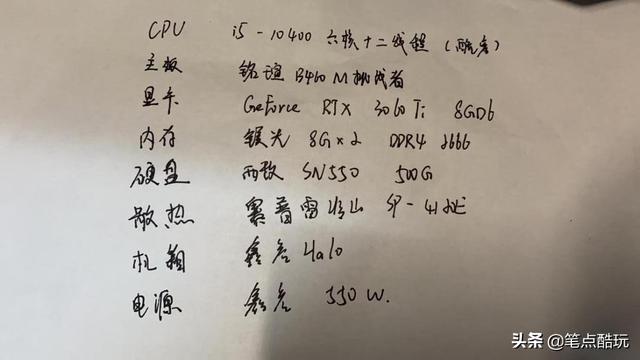 CPU i5-10400 六核十二线程(酷睿)
主板 铭瑄 B460M 挑战者
显卡 GeForce RTX 3060Ti 8GD6
内存 镁光 8G×2 DDR4 2666
硬盘 西数 SN550 500G
散热 赛普雷冰山 SP-
机箱 鑫谷 Halo
电源 鑫谷 550W.
头条 @笔点酷玩